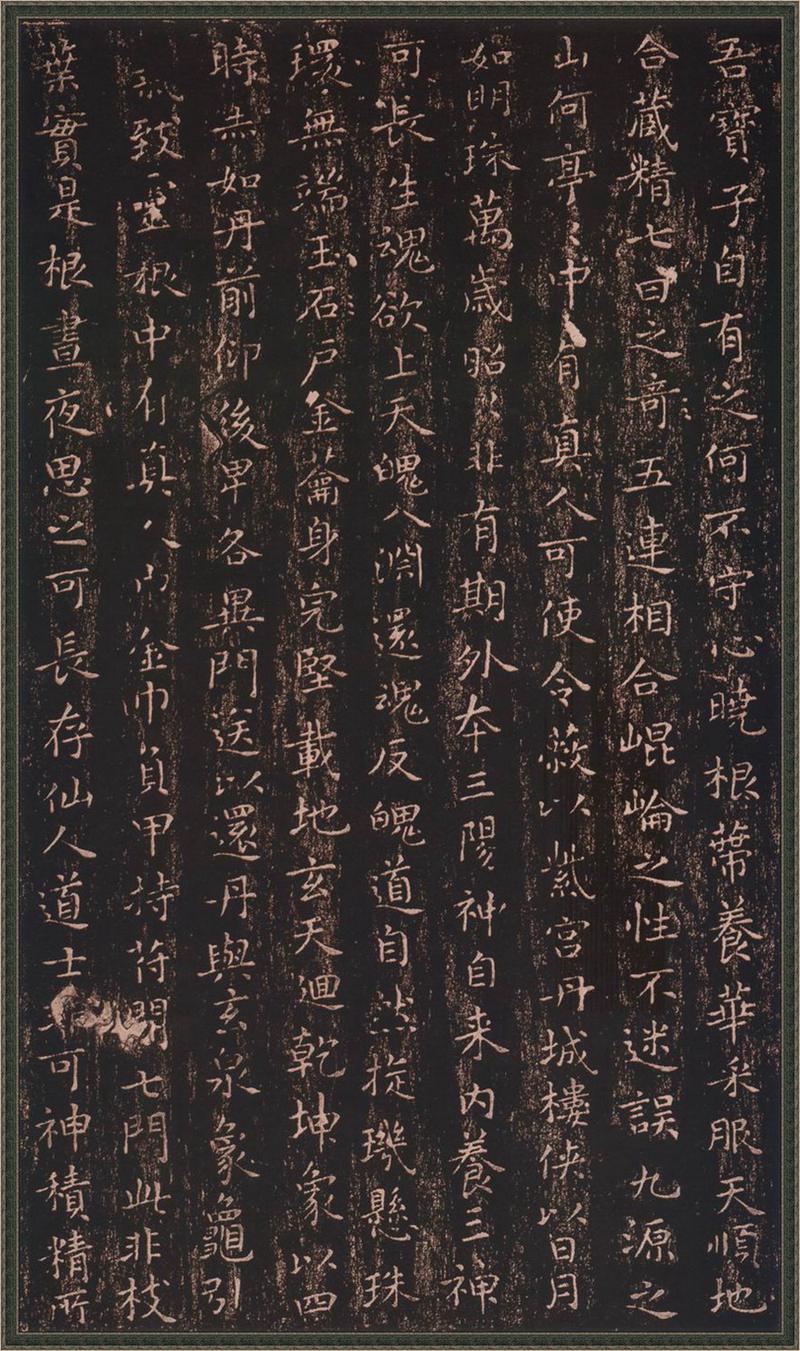 吾寶子自有之何不守心曉根蔕養華采服天順地
合藏精七日之奇五連相合崐崘之性不迷誤九源之
山何亭〻中有真人可使令蔽以紫宮丹城樓俠以日月
如明珠萬歲昭〻非有期外本三陽神自来內養三神
可長生魂欲上天魄入淵還魂反魄道自然旋璣懸珠
環無端玉石戶金蘥身完堅載地玄天迴乾坤象以四
時赤如丹前仰後卑各異門送以還丹與玄泉象龜引
氣致靈根中有真人巾金巾負甲持苻開七門此非枝
葉實是根晝夜思之可長存仙人道士非可神積精所